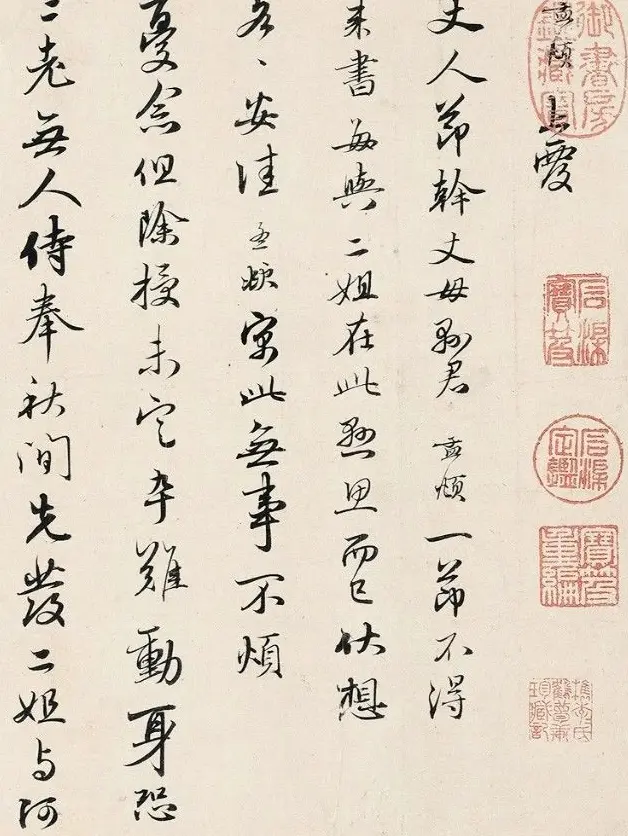 孟頫上覆
丈人節幹丈母縣君孟頫一節不得
來書每與二姐在此懸思而已伏想
各、安佳孟頫寓此無事不煩
憂念但除授未定卒難動身恐
二老無人侍奉秋間先發二姐与阿
御書房鑑藏寶
石渠寶笈
石渠定鑑
寶笈重編